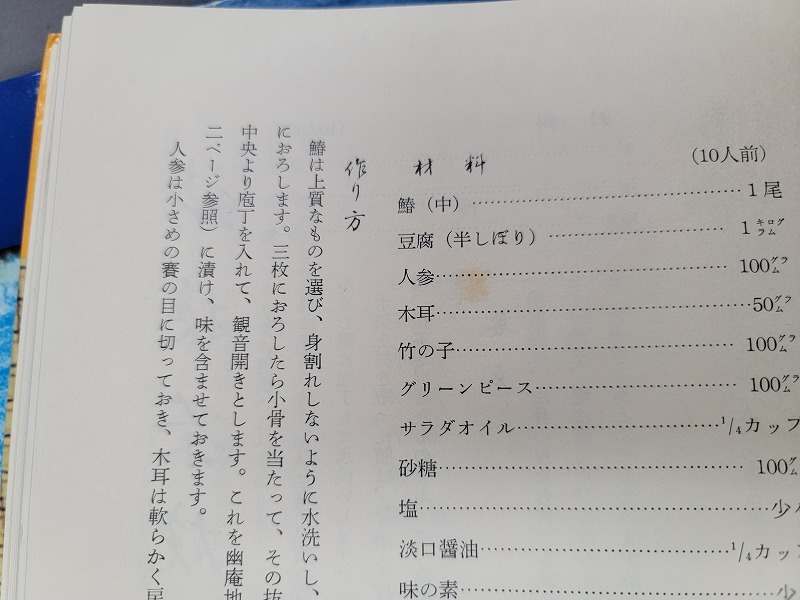 (10人前)
材料
鰆（中）……1尾
豆腐（半しぼり）……1キログラム
人参……100グラム
木耳……50グラム
竹の子……100グラム
グリーンピース……100グラム
サラダオイル……1/4カップ
砂糖……100グ
塩……少
淡口醤油……1/4カップ
味の素……少
作り方
鰆は上質なものを選び、身割れしないように水洗いし、
におろします。三枚におろしたら小骨を当たって、その抜
中央より庖丁を入れて、観音開きとします。これを幽庵地
二ページ参照）に漬け、味を含ませておきます。
人参は小さめの賽の目に切っておき、木耳は軟らかく戻